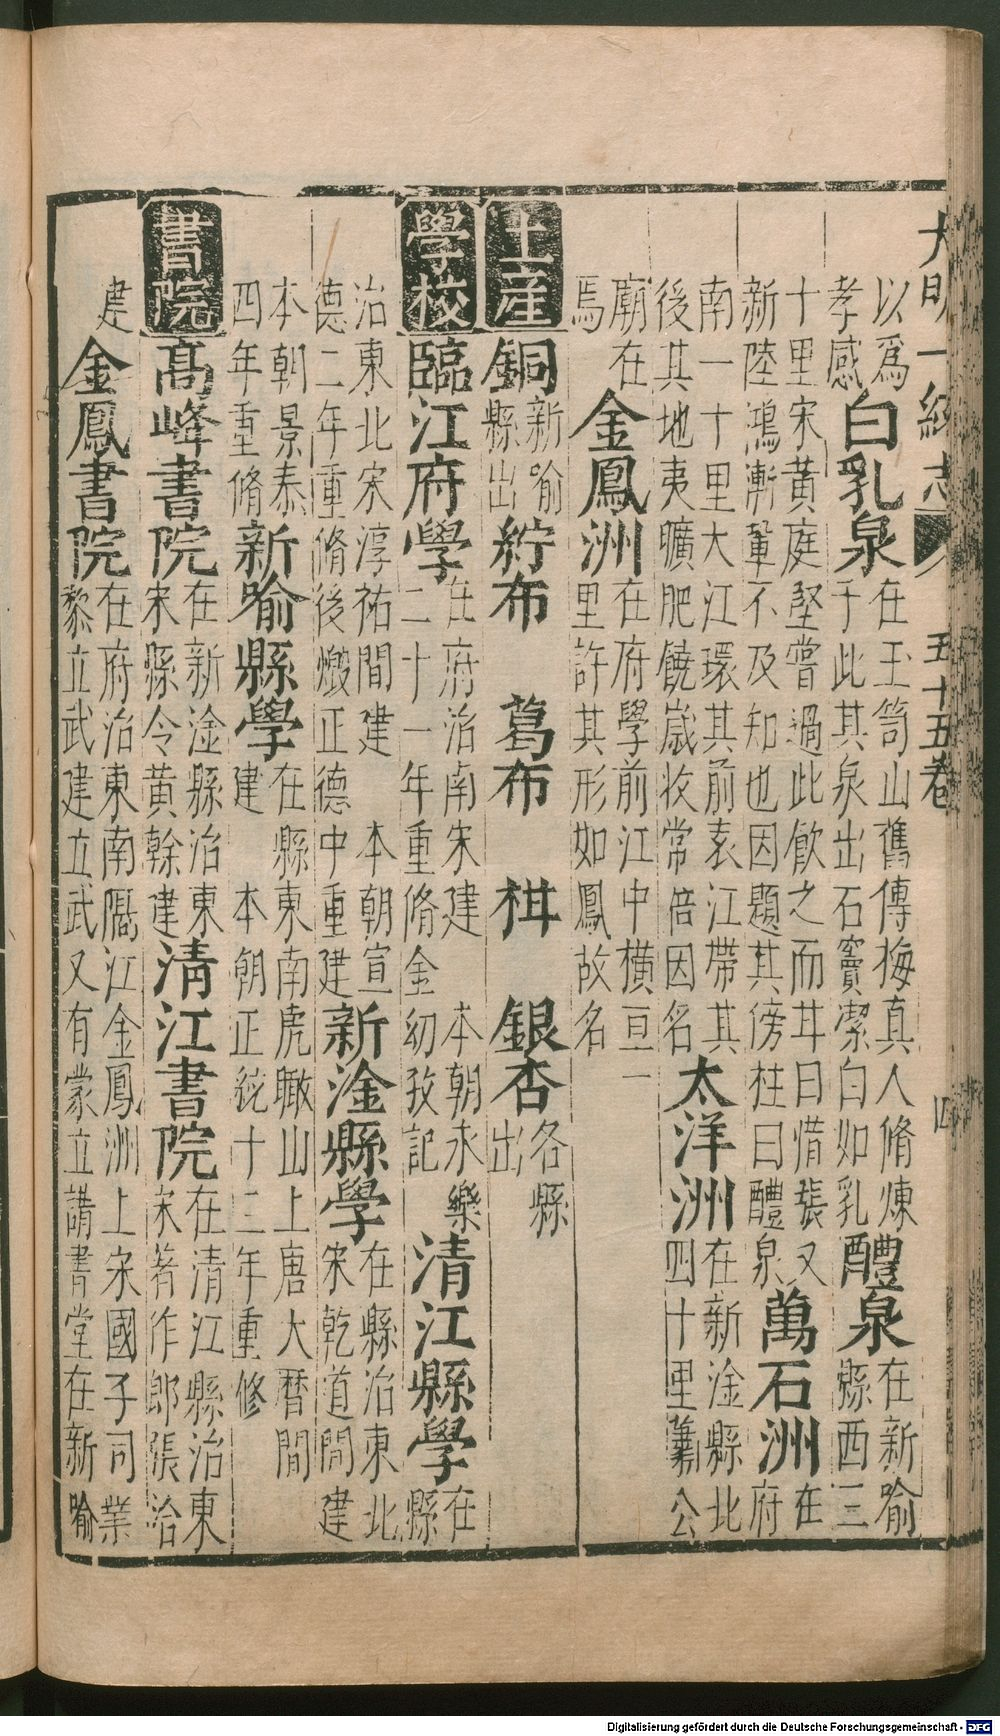 大明一統志 五十五卷 四
以爲
孝感
白乳泉
在玉笥山舊傳梅真人脩煉
于此其泉出石竇潔白如乳
醴泉
在新喻
縣西三
十里宋黃庭堅嘗過此飲之而甘曰惜張又
新陸鴻漸輩不及知也因題其傍柱曰醴泉
萬石洲
在
府
南一十里大江環其前袁江帶其
後其地夷曠肥饒歲收常倍因名
太洋洲
在新淦縣北
四十里蕭公
廟在
焉
金鳳洲
在府學前江中橫亘一
里許其形如鳳故名
土産
銅
新喻
縣出
紵布 葛布 柑 銀杏
各縣
出
學校
臨江府學
在府治南宋建 本朝永樂
二十一年重脩金幼孜記
清江縣學
在
縣
治東北宋淳祐間建 本朝宣
德二年重脩後燬正德中重建
新淦縣學
在縣治東北
宋乾道間建
本朝景泰
四年重脩
新喻縣學
在縣東南虎瞰山上唐大曆間
建 本朝正統十二年重修
書院
高峰書院
在新淦縣治東
宋縣令黃榦建
清江書院
在清江縣治東
宋著作郎張洽
建
金鳳書院
在府治東南隅江金鳳洲上宋國子司業
黎立武建立武又有蒙立講書堂在新喻
Digitalisierung gefördert durch die Deutsche Forschungsgemeinschaft - DFG